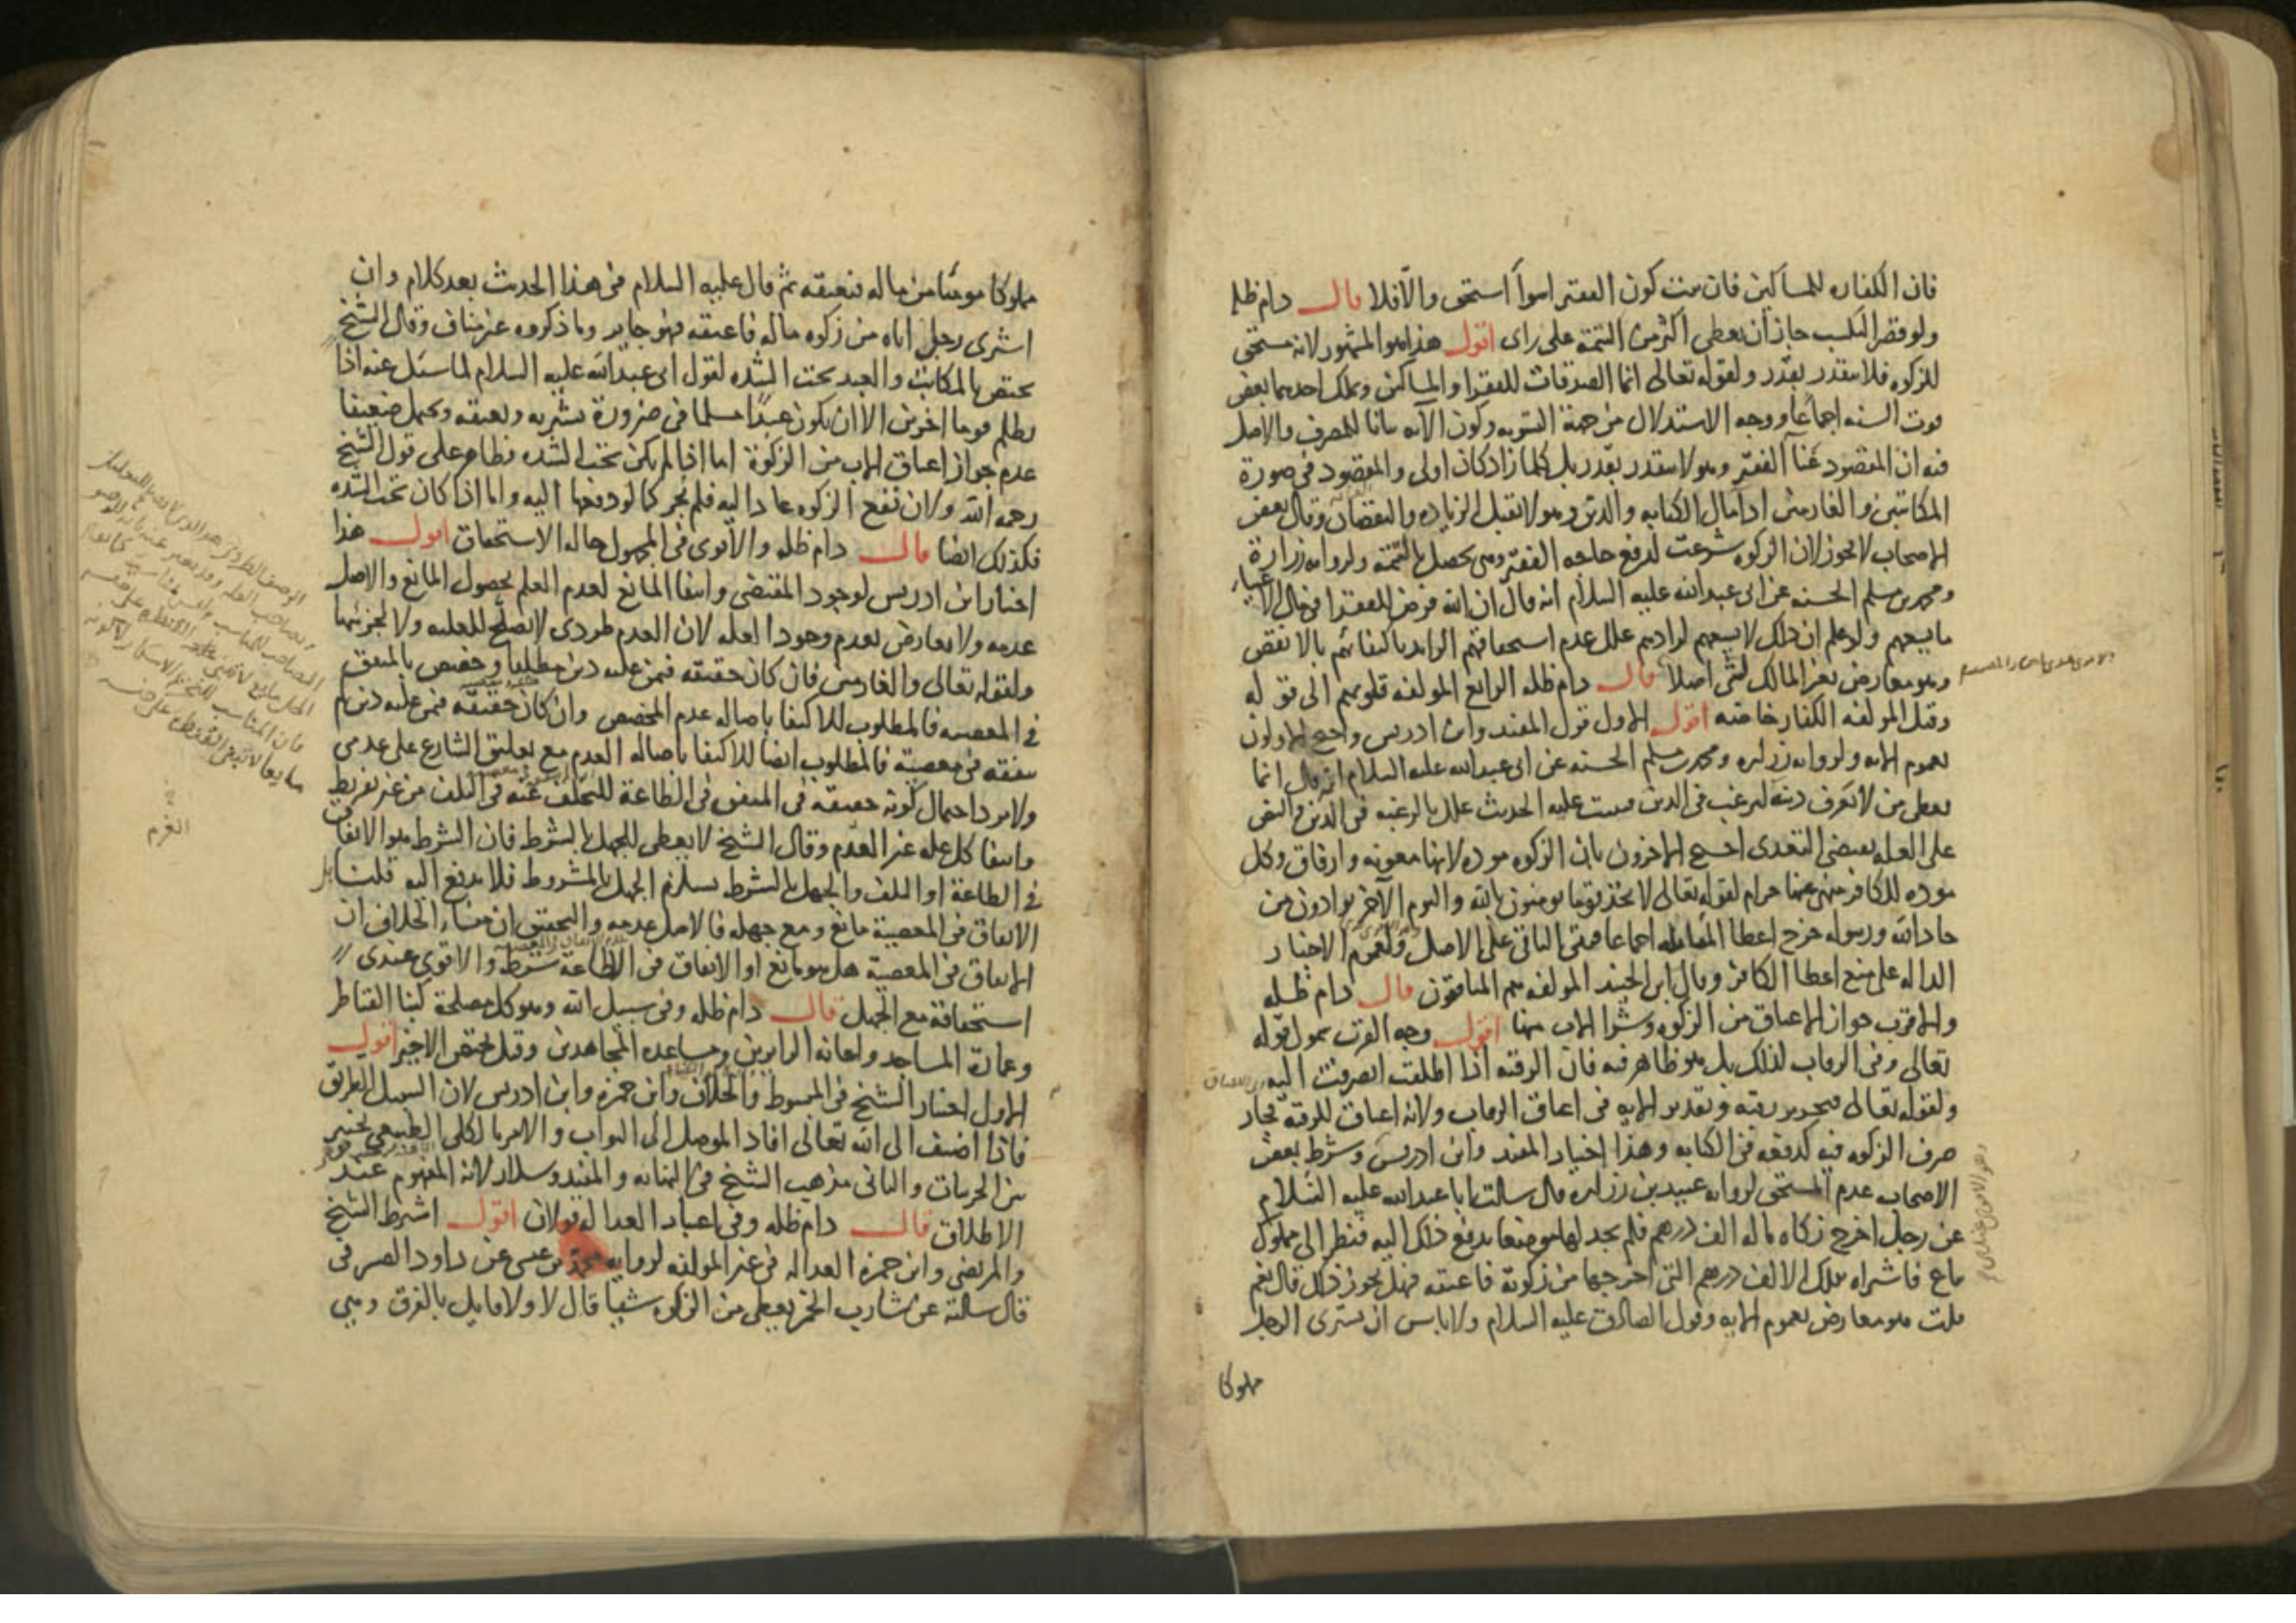 فان الكفاره للمساكين فان ثبت كون الفقير اسوأ استحق والا فلا قال دام ظله
ولو قصر التكسب جاز أن يعطى أكثر من التتمة على راى اقول هذا هو المشهور لانه مستحق
للزكوه فلا يتقدر بقدر ولقوله تعالى انما الصدقات للفقرا والمساكين وتملك احدهما بعض
قوت السنه اجماعا ووجه الاستدلال من جهة التسويه وكون الآيه بيانا للمصرف والاصل
فيه ان المقصود غنا الفقير وهو لا يتقدر بقدر بل كلما زاد كان اولى والمقصود في صورة
المكاتبين والغارمين ادا مال الكتابه والدين وهو لا تقبل الزياده والنقصان وقال بعض
الاصحاب لا يجوز لان الزكوه شرعت لدفع حاجه الفقير وهى تحصل بالتتمة ولروايه زرارة
ومحمد بن مسلم الحسنه عن ابى عبد الله عليه السلام انه قال ان الله فرض للفقرا فى مال الاغنياء
ما يسعهم ولو علم ان ذلك لا يسعهم لزادهم علل عدم استحقاقهم الزايد باكتفائهم بالانقص
وهو معارض بغير المالك لشى اصلا قال دام ظله الرابع المولفه قلوبهم الى قوله
وقيل المولفه الكفار خاصه اقول الاول قول المفيد وابن ادريس واحتج الاولون
بعموم الايه ولروايه زراره ومحمد بن مسلم الحسنه عن ابى عبد الله عليه السلام انه قال انما
يعطى من لا يعرف دينه ليرغب فى الدين فيثبت عليه الحديث علل بالرغبه فى الدين والنص
على العله يقتضى التعدى احتج الاخرون بان الزكوه موده لانها معونه وارفاق وكل
موده للكافر منهى عنها حرام لقوله تعالى لا تجد قوما يومنون بالله واليوم الآخر يوادون من
حاد الله ورسوله خرج اعطا المقاتله اجماعا فبقى الباقى على الاصل ولعموم الاخبار
الداله على منع اعطا الكافر وقال ابن الجنيد المولفه هم المنافقون قال دام ظله
والاقرب جواز الاعتاق من الزكوه وشرا الاب منها اقول وجه القرب عموم قوله
تعالى وفى الرقاب لذلك بل هو ظاهر فيه فان الرقبه اذا اطلقت انصرفت اليه
ولقوله تعالى فتحرير رقبه وتقدير الايه فى اعتاق الرقاب ولانه اعتاق للرقبه فجاز
صرف الزكوه فيه كدفعه فى الكتابه وهذا اختيار المفيد وابن ادريس وشرط بعض
الاصحاب عدم المستحق لروايه عبيد بن زراره قال سالت ابا عبد الله عليه السلام
عن رجل اخرج زكاه ماله الف درهم فلم يجد لها موضعا يدفع ذلك اليه فنظر الى مملوك
يباع فاشتراه بتلك الالف درهم التى اخرجها من زكوته فاعتقه فهل يجوز ذلك قال نعم
قلت هو معارض بعموم الايه وقول الصادق عليه السلام ولا باس ان يشترى الرجل
مملوكا
مملوكا مومنا من ماله فيعتقه ثم قال عليه السلام فى هذا الحديث بعد كلام وان
اشترى رجل اباه من زكوه ماله فاعتقه فهو جايز وما ذكروه غير مناف وقال الشيخ
يختص بالمكاتب والعبد تحت الشده لقول ابى عبد الله عليه السلام لما سئل عنه اذا
يظلم قوما اخرين الا ان يكون عبدا مسلما فى ضرورة يشتريه ويعتقه ويحتمل ضعيفا
عدم جواز اعتاق الاب من الزكوة اما اذا لم يكن تحت الشده فظاهر على قول الشيخ
رحمه الله ولان نفع الزكوه عاد اليه فلم يجز كما لو دفعها اليه واما اذا كان تحت الشده
فكذلك ايضا قال دام ظله والاقوى فى المجهول حاله الاستحقاق اقول هذا
اختيار ابن ادريس لوجود المقتضى وانتفا المانع لعدم العلم بحصول المانع والاصل
عدمه ولا يعارض بعدم وجود العله لان العدم طردى لا يصلح للعليه ولا لجزئيتها
ولقوله تعالى والغارمين فان كان حقيقه فيمن عليه دين مطلقا وخصص بالمنفق
فى المعصيه فالمطلوب للاكتفا باصاله عدم المخصص وان كان حقيقه فيمن عليه دين لم
ينفقه فى معصية فالمطلوب ايضا للاكتفا باصاله العدم مع تعليق الشارع على عدمى
ولا يرد احتمال كونه حقيقه فى المنفق فى الطاعة للتخلف عنه فى التلف من غير تفريط
وانتفا كل عله غير العدم وقال الشيخ لا يعطى للجهل بالشرط فان الشرط هو الانفاق
فى الطاعة او التلف والجهل بالشرط يستلزم الجهل بالمشروط فلا يدفع اليه قلنا بل
الانفاق فى المعصية مانع ومع جهله فالاصل عدمه والتحقيق ان منشاء الخلاف ان
الانفاق فى المعصية هل هو مانع او الانفاق فى الطاعة شرط والاقوى عندى
استحقاقه مع الجهل قال دام ظله وفى سبيل الله وهو كل مصلحة كبنا القناطر
وعمارة المساجد واعانه الزايرين ومساعده المجاهدين وقيل يختص الاخير اقول
الاول اختيار الشيخ فى المبسوط والخلاف وابن حمزه وابن ادريس لان السبيل الطريق
فاذا اضيف الى الله تعالى افاد الموصل الى الثواب والامر بالكلى الطبيعى تخيير
بين الجزييات والثانى مذهب الشيخ فى النهايه والمفيد وسلار لانه المفهوم عند
الاطلاق قال دام ظله وفى اعتبار العداله قولان اقول اشترط الشيخ
والمرتضى وابن حمزه العداله فى غير المولفه لروايه محمد بن عيسى عن داود الصرمى
قال سالته عن شارب الخمر يعطى من الزكوه شيئا قال لا ولا قايل بالفرق وهى